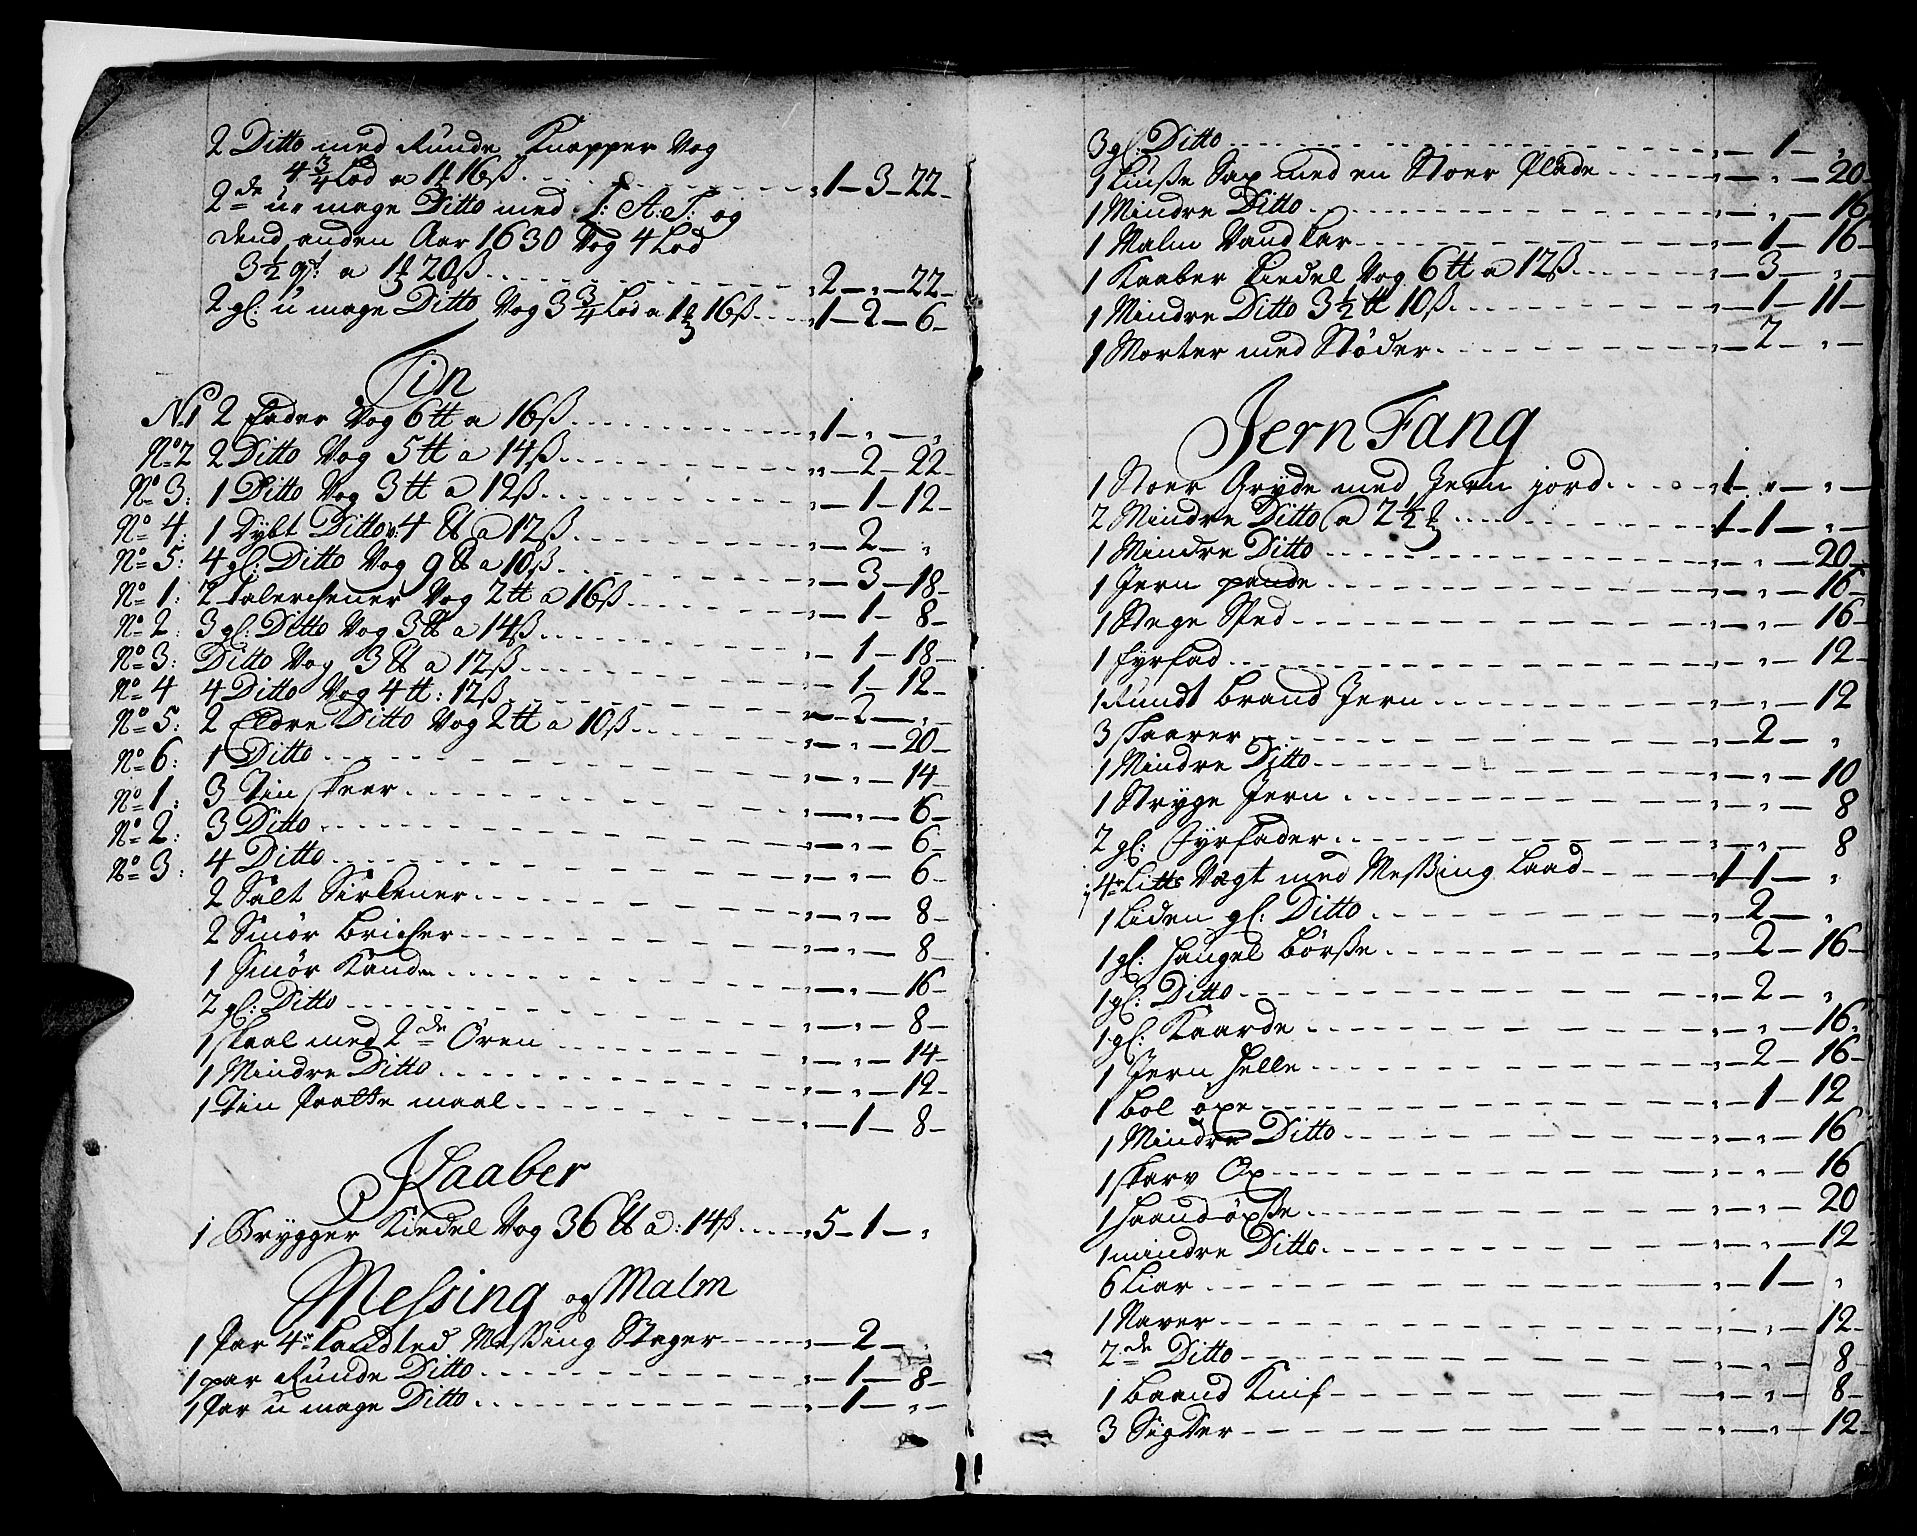 2 Ditto med Runde Knapper Vog
4¾ Lod a 1 16ß „1–3–22–
2de u mage Ditto med I: A: T: og
dend anden Aar 1630 Vog 4 Lod
3½ qt: a 1 20ß „2–„–22–
2 gl: u mage Ditto Vog 3¾ Lod a 1 16ß „1–2–6–
Tin
No 1 2 Fader Vog 6 tt a 16ß „1–„–„
No 2 2 Ditto Vog 5 tt a 14ß „–2–22–
No 3: 1 Ditto Vog 3 tt a 12ß –1–12–
No 4: 1 Dybt Ditto v: 4 tt a 12ß –2–„
No 5: 4 gl: Ditto Vog 9 tt a 10ß –3–18–
No 1: 2 talerckener Vog 2 tt a 16ß –1–8–
No 2: 3 gl: Ditto Vog 3 tt a 14ß –1–18–
No 3: Ditto Vog 3 tt a 12ß –1–12–
No 4 4 Ditto Vog 4 tt: 12ß –2–„
No 5: 2 Eldre Ditto Vog 2 tt a 10ß –„–20–
No 6: 1 Ditto –„–14–
No 1: 3 Tin skeer –„–6–
No 2: 3 Ditto –„–6–
No 3: 4 Ditto –„–6–
2 Salt Sirkener –„–8–
2 Smør Bricker –„–8–
1 Smør Kande –„–16–
2 gl: Ditto –„–8–
1 skaal med 2de Ören –„–14–
1 Mindre Ditto –„–12–
1 Tin maal –1–8–
Kaaber
1 Brygger Kiedel Vog 36 tt a: 14ß „5–1–„
Messing og Malm
1 Par 4r Messing Stager „–2–„
1 par Runde Ditto „–1–8–
1 Par u mage Ditto „–1–„–
3 gl: Ditto „–1–„
1 Liuse Sax med en Stoer Plade „–„–20–
1 Mindre Ditto „–„–16
1 Malm Vandkar „–1–16–
1 Kaaber Kiedel Vog 6 tt a 12ß „–3–„–
1 Mindre Ditto 3½ tt 10ß „–1–11–
1 Morter med Støder „–2–„–
Jern Fang
1 Stoer Gryde med Jern jord 1–„–„–
2 Mindre Ditto a 2½ 1–1–„–
1 Mindre Ditto „–„–20–
1 Jern pande „–„–16–
1 Stege Sped „–„–16
1 fyrfad „–„–12–
1 Rundt Brand Jern „–„–12
3 skaarer „–2–„
1 Mindre Ditto „–„–10
1 Stryge Jern „–„–8
2 gl: Fyrfader „–„–8
4r Vægt med Messing Laad 1–1–„
1 Liden gl: Ditto „–2–„
1 gl: Haugel Børsse „–2–16–
1 gl: Ditto „–2–„
1 gl: Kaarde „–„–16
1 Jern Helle „–2–16–
1 Bol øxe „–1–12
1 Mindre Ditto „–„–16
1 skarv Øx „–„–16
1 haandøxse „–„–20
1 mindre Ditto „–„–12
6 Liar „–1–„
1 Naver „–„–12–
2de Ditto „–„–8–
1 Baand Knif „–„–8–
3 Sigder „–„–12–